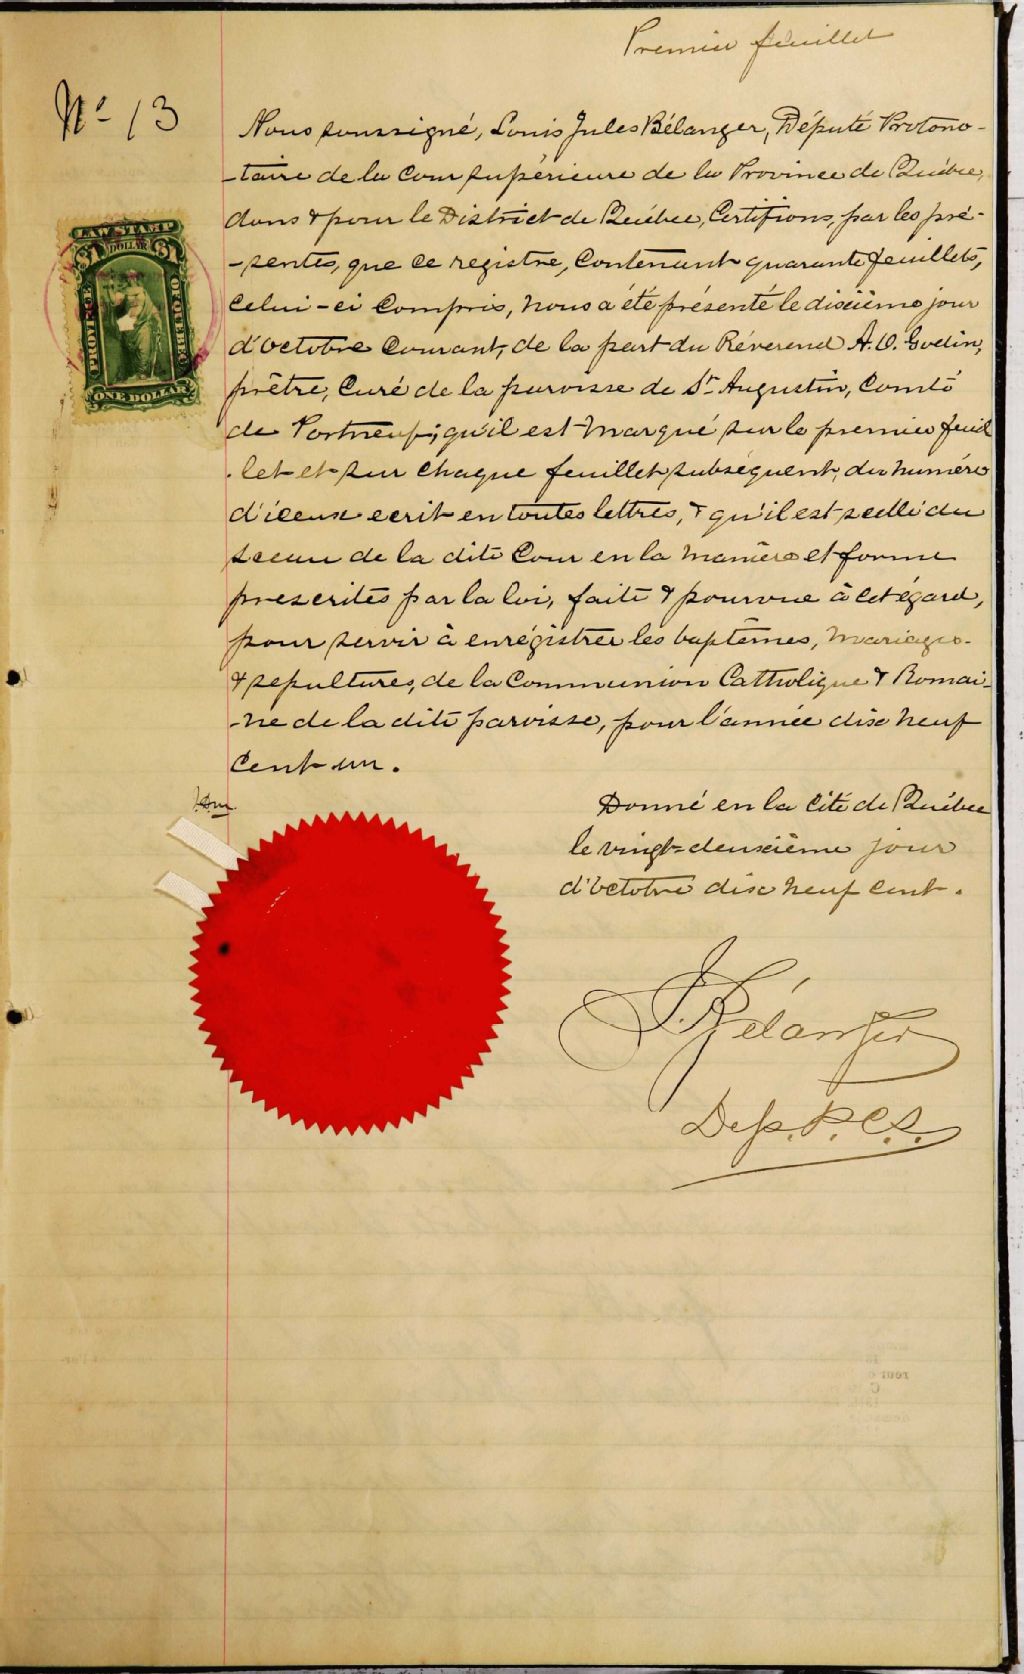 Premier feuillet
No 13
Nous soussigné, Louis Jules Bélanger, Député Protono-
-taire de la Cour supérieure de la Province de Québec,
dans & pour le District de Québec, Certifions, par les pré-
-sentes, que ce registre, Contenant quarante feuillets,
Celui-ci Compris, nous a été présenté le dixième jour
d'octobre Courant, de la part du Révérend A. O. Godin,
prêtre, Curé de la paroisse de St Augustin, Comté
de Portneuf; qu'il est marqué sur le premier feuil
-let et sur chaque feuillet subséquent, du numéro
d'iceux ecrit en toutes lettres, & qu'il est scellé du
sceau de la dite Cour en la manière et forme
prescrites par la loi, faite & pourvue à cet égard,
pour servir à enrégistrer les baptêmes, mariages
& sepultures, de la Communion Catholique & Romai-
-ne de la dite paroisse, pour l'année dix neuf
Cent un.
Donné en la Cité de Québec
le vingt-deuxième jour
d'octobre dix neuf cent.
J. Bélanger
Dep. P. C. S.
LAW STAMP
$1 DOLLAR $1
PROVINCE OF QUEBEC
ONE DOLLAR